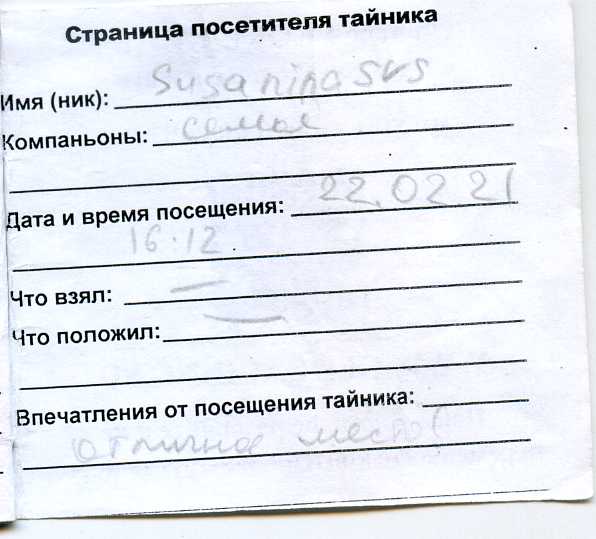 Страница посетителя тайника
Имя (ник): SusaninaSVS
Компаньоны: семья
Дата и время посещения: 22.02 21
16:12
Что взял: —
Что положил: —
Впечатления от посещения тайника:
отличное место!